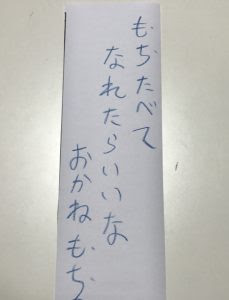 もぢたべて
なれたらいいな
おかねもぢ